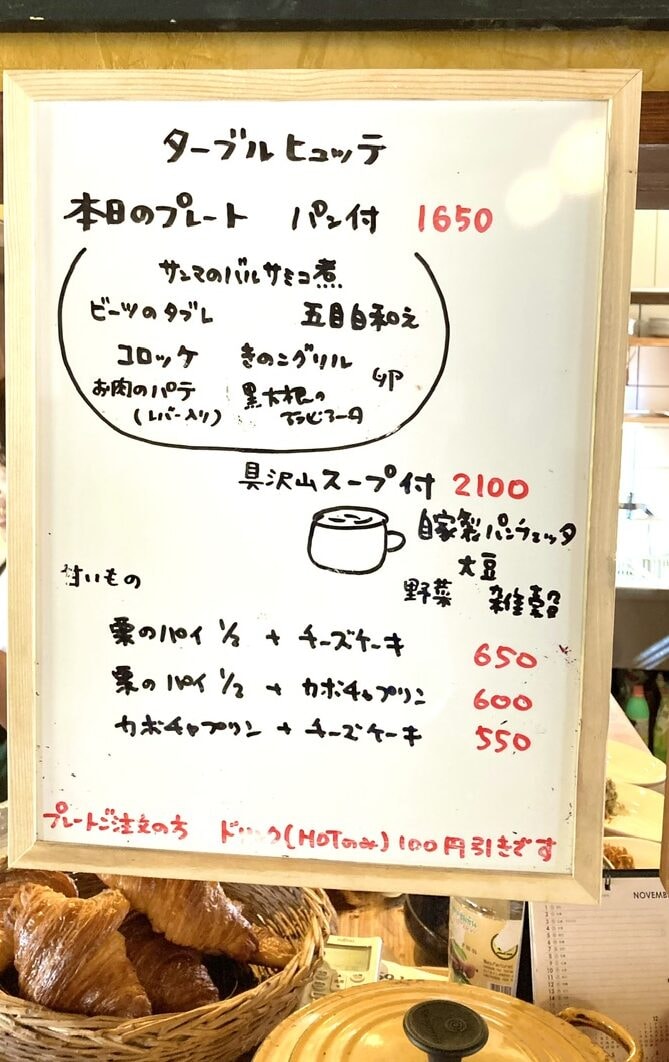 ターブルヒュッテ
本日のプレート パン付 1650
サンマのバルサミコ煮
ビーツのタブレ 五目白和え
コロッケ きのこグリル 卵
お肉のパテ 黒大根の
(レバー入り)
具沢山スープ付 2100
自家製パンチェッタ
大豆
野菜 雑穀
甘いもの
栗のパイ 1/2 + チーズケーキ 650
栗のパイ 1/2 + カボチャプリン 600
カボチャプリン + チーズケーキ 550
プレートご注文の方 ドリンク(HOTのみ)100円引きです
NOVEMBE